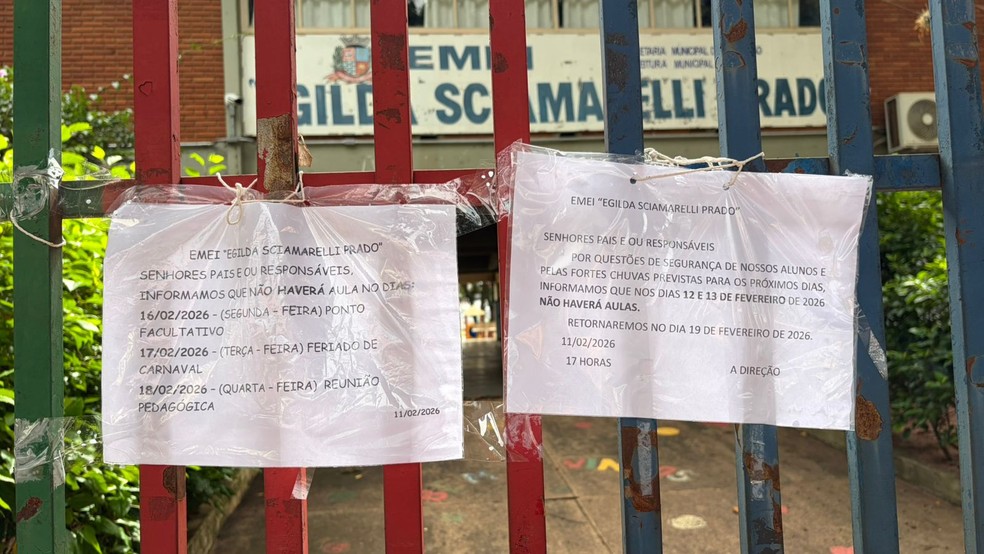 EMEI
"EGILDA SCIAMARELLI PRADO
EMEI "EGILDA SCIAMARELLI PRADO"
SENHORES PAIS E OU RESPONSÁVEIS,
INFORMAMOS QUE NÃO HAVERÁ AULA NO DIAS:
16/02/2026 - (SEGUNDA - FEIRA) PONTO
FACULTATIVO
17/02/2026 - (TERÇA - FEIRA) FERIADO DE
CARNAVAL
18/02/2026 - (QUARTA - FEIRA) REUNIÃO
PEDAGÓGICA
11/02/2026
EMEI "EGILDA SCIAMARELLI PRADO"
SENHORES PAIS E OU RESPONSÁVEIS
POR QUESTÕES DE SEGURANÇA DE NOSSOS ALUNOS E
PELAS FORTES CHUVAS PREVISTAS PARA OS PRÓXIMOS DIAS,
INFORMAMOS QUE NOS DIAS 12 E 13 DE FEVEREIRO DE 2026
NÃO HAVERÁ AULAS.
RETORNAREMOS NO DIA 19 DE FEVEREIRO DE 2026.
11/02/2026
17 HORAS
A DIREÇÃO